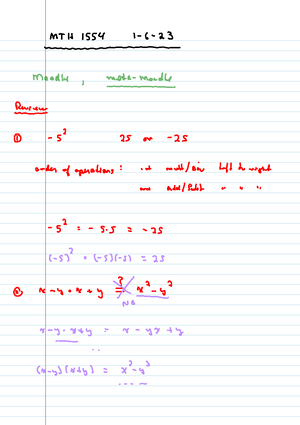 MTH 1554 1-6-23
Moodle , math-moodle
Review
① -5² 25 or -25
order of operations : 1st mult/Div left to right
Add/Subt " " "
-5² = -5·5 = -25
(-5)² = (-5)(-5) = 25
② x-y·x+y ?= x²-y²
No
x-y·x+y = x - yx + y
(x-y)(x+y) = x²-y²